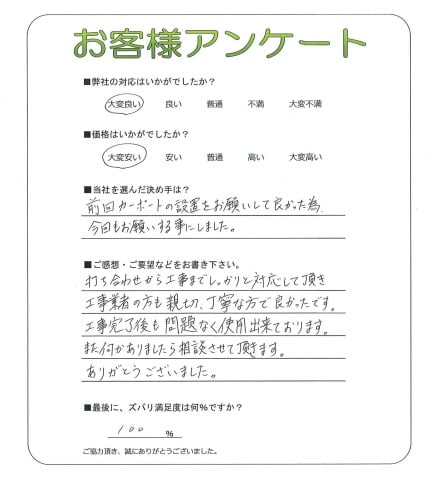 お客様アンケート
■弊社の対応はいかがでしたか?
大変良い 良い 普通 不満 大変不満
■価格はいかがでしたか?
大変安い 安い 普通 高い 大変高い
■当社を選んだ決め手は?
前回カーポートの設置をお願いして良かった為、
今回もお願いする事にしました。
■ご感想・ご要望などをお書き下さい。
打ち合わせから工事までしっかりと対応して頂き
工事業者の方も親切、丁寧な方で良かったです。
工事完了後も問題なく使用出来ております。
また何かありましたら相談させて頂きます。
ありがとうございました。
■最後に、ズバリ満足度は何%ですか?
100 %
ご協力頂き、誠にありがとうございました。